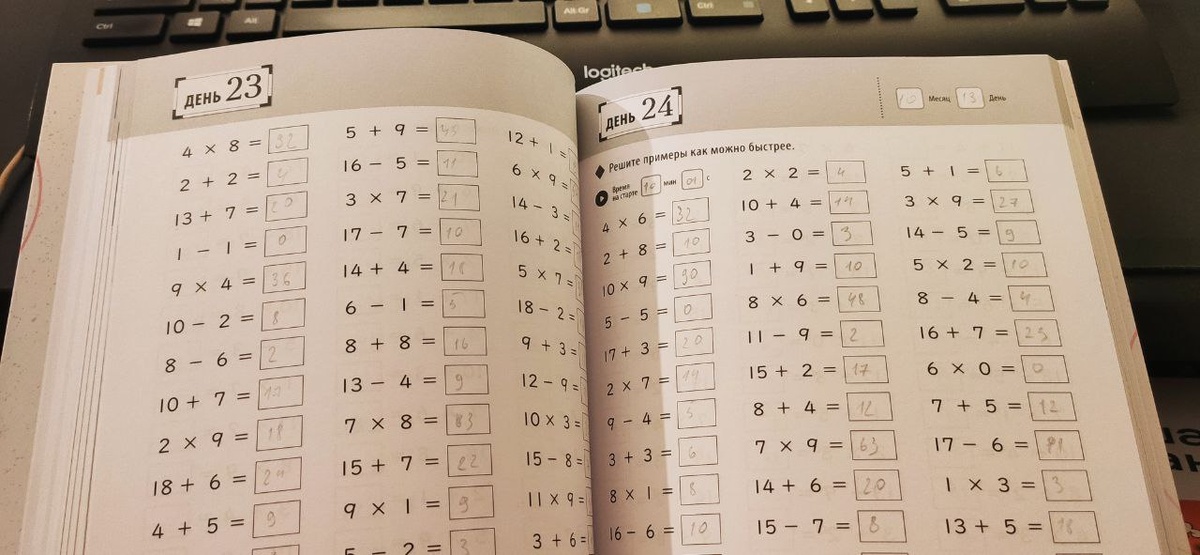 Ctrl
Alt
Alt Gr
Ctrl
logitech
ДЕНЬ 23
4 × 8 = 32
2 + 2 = 4
13 + 7 = 20
1 - 1 = 0
9 × 4 = 36
10 - 2 = 8
8 - 6 = 2
10 + 7 =
2 × 9 = 18
18 + 6 =
4 + 5 = 9
5 + 9 = 45
16 - 5 = 11
3 × 7 = 21
17 - 7 = 10
14 + 4 = 18
6 - 1 = 5
8 + 8 = 16
13 - 4 = 9
7 × 8 =
15 + 7 = 22
9 × 1 = 9
5 - 2 = 3
12 + 1 =
6 × 9 =
14 - 3 =
16 + 2 =
5 × 7 =
18 - 2 =
9 + 3 =
12 - 9 =
10 × 3 =
15 - 8 =
11 × 9 =
3 + 6 =
ДЕНЬ 24
10 Месяц 13 День
Решите примеры как можно быстрее.
Время на старте 10 мин 01 с
4 × 6 = 32
2 + 8 = 10
10 × 9 = 90
5 - 5 = 0
17 + 3 = 20
2 × 7 = 14
9 - 4 = 5
3 + 3 = 6
8 × 1 = 8
16 - 6 = 10
2 × 2 = 4
10 + 4 = 14
3 - 0 = 3
1 + 9 = 10
8 × 6 = 48
11 - 9 = 2
15 + 2 = 17
8 + 4 = 12
7 × 9 = 63
14 + 6 = 20
15 - 7 = 8
5 + 1 = 6
3 × 9 = 27
14 - 5 = 9
5 × 2 = 10
8 - 4 = 4
16 + 7 = 23
6 × 0 = 0
7 + 5 = 12
17 - 6 =
1 × 3 = 3
13 + 5 = 18